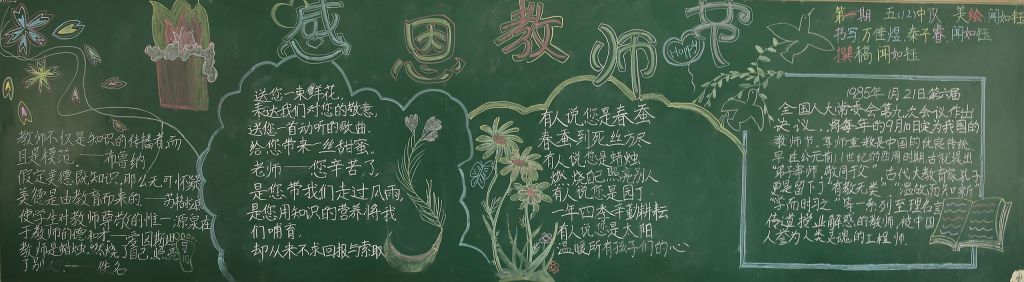 感恩教师节
Happy
第一期 五(12)中队 美绘 闻如钰
书写 万佳煜 秦子睿 闻如钰
撰稿 闻如钰
教师不仅是知识的传播者,而
且是模范. ——布鲁纳
假定美德既知识,那么无可怀疑
美德是由教育而来的.——苏格拉底
使学生对教师尊敬的惟一源泉在
于教师的德和才——爱因斯坦
教师是蜡烛,燃烧了自己,照亮
了别人.——佚名
送您一束鲜花.
表达我们对您的敬意,
送您一首动听的歌曲.
给您带来一丝甜蜜.
老师——您辛苦了.
是您带我们走过风雨,
是您用知识的营养将我
们哺育.
却从来不求回报与索取
有人说您是春蚕
春蚕到死丝方尽
有人说您是蜡烛
燃烧自己照亮别人
有人说您是园丁
一年四季不重耕耘
有人说您是太阳
温暖所有孩子们的心
1985年1月21日第六届
全国人大常委会第九次会议作出
决议,将每年的9月10日定为我国的
教师节.尊师重教是中国的优良传统
早在公元前11世纪的西周时期,就提出
"弟子事师,敬同于父",古代大教育家孔子
更是留下了"有教无类""温故而知新"
"学而时习之"等一系列至理名言
传道授业解惑的教师,被中国
人誉为人类灵魂的工程师.